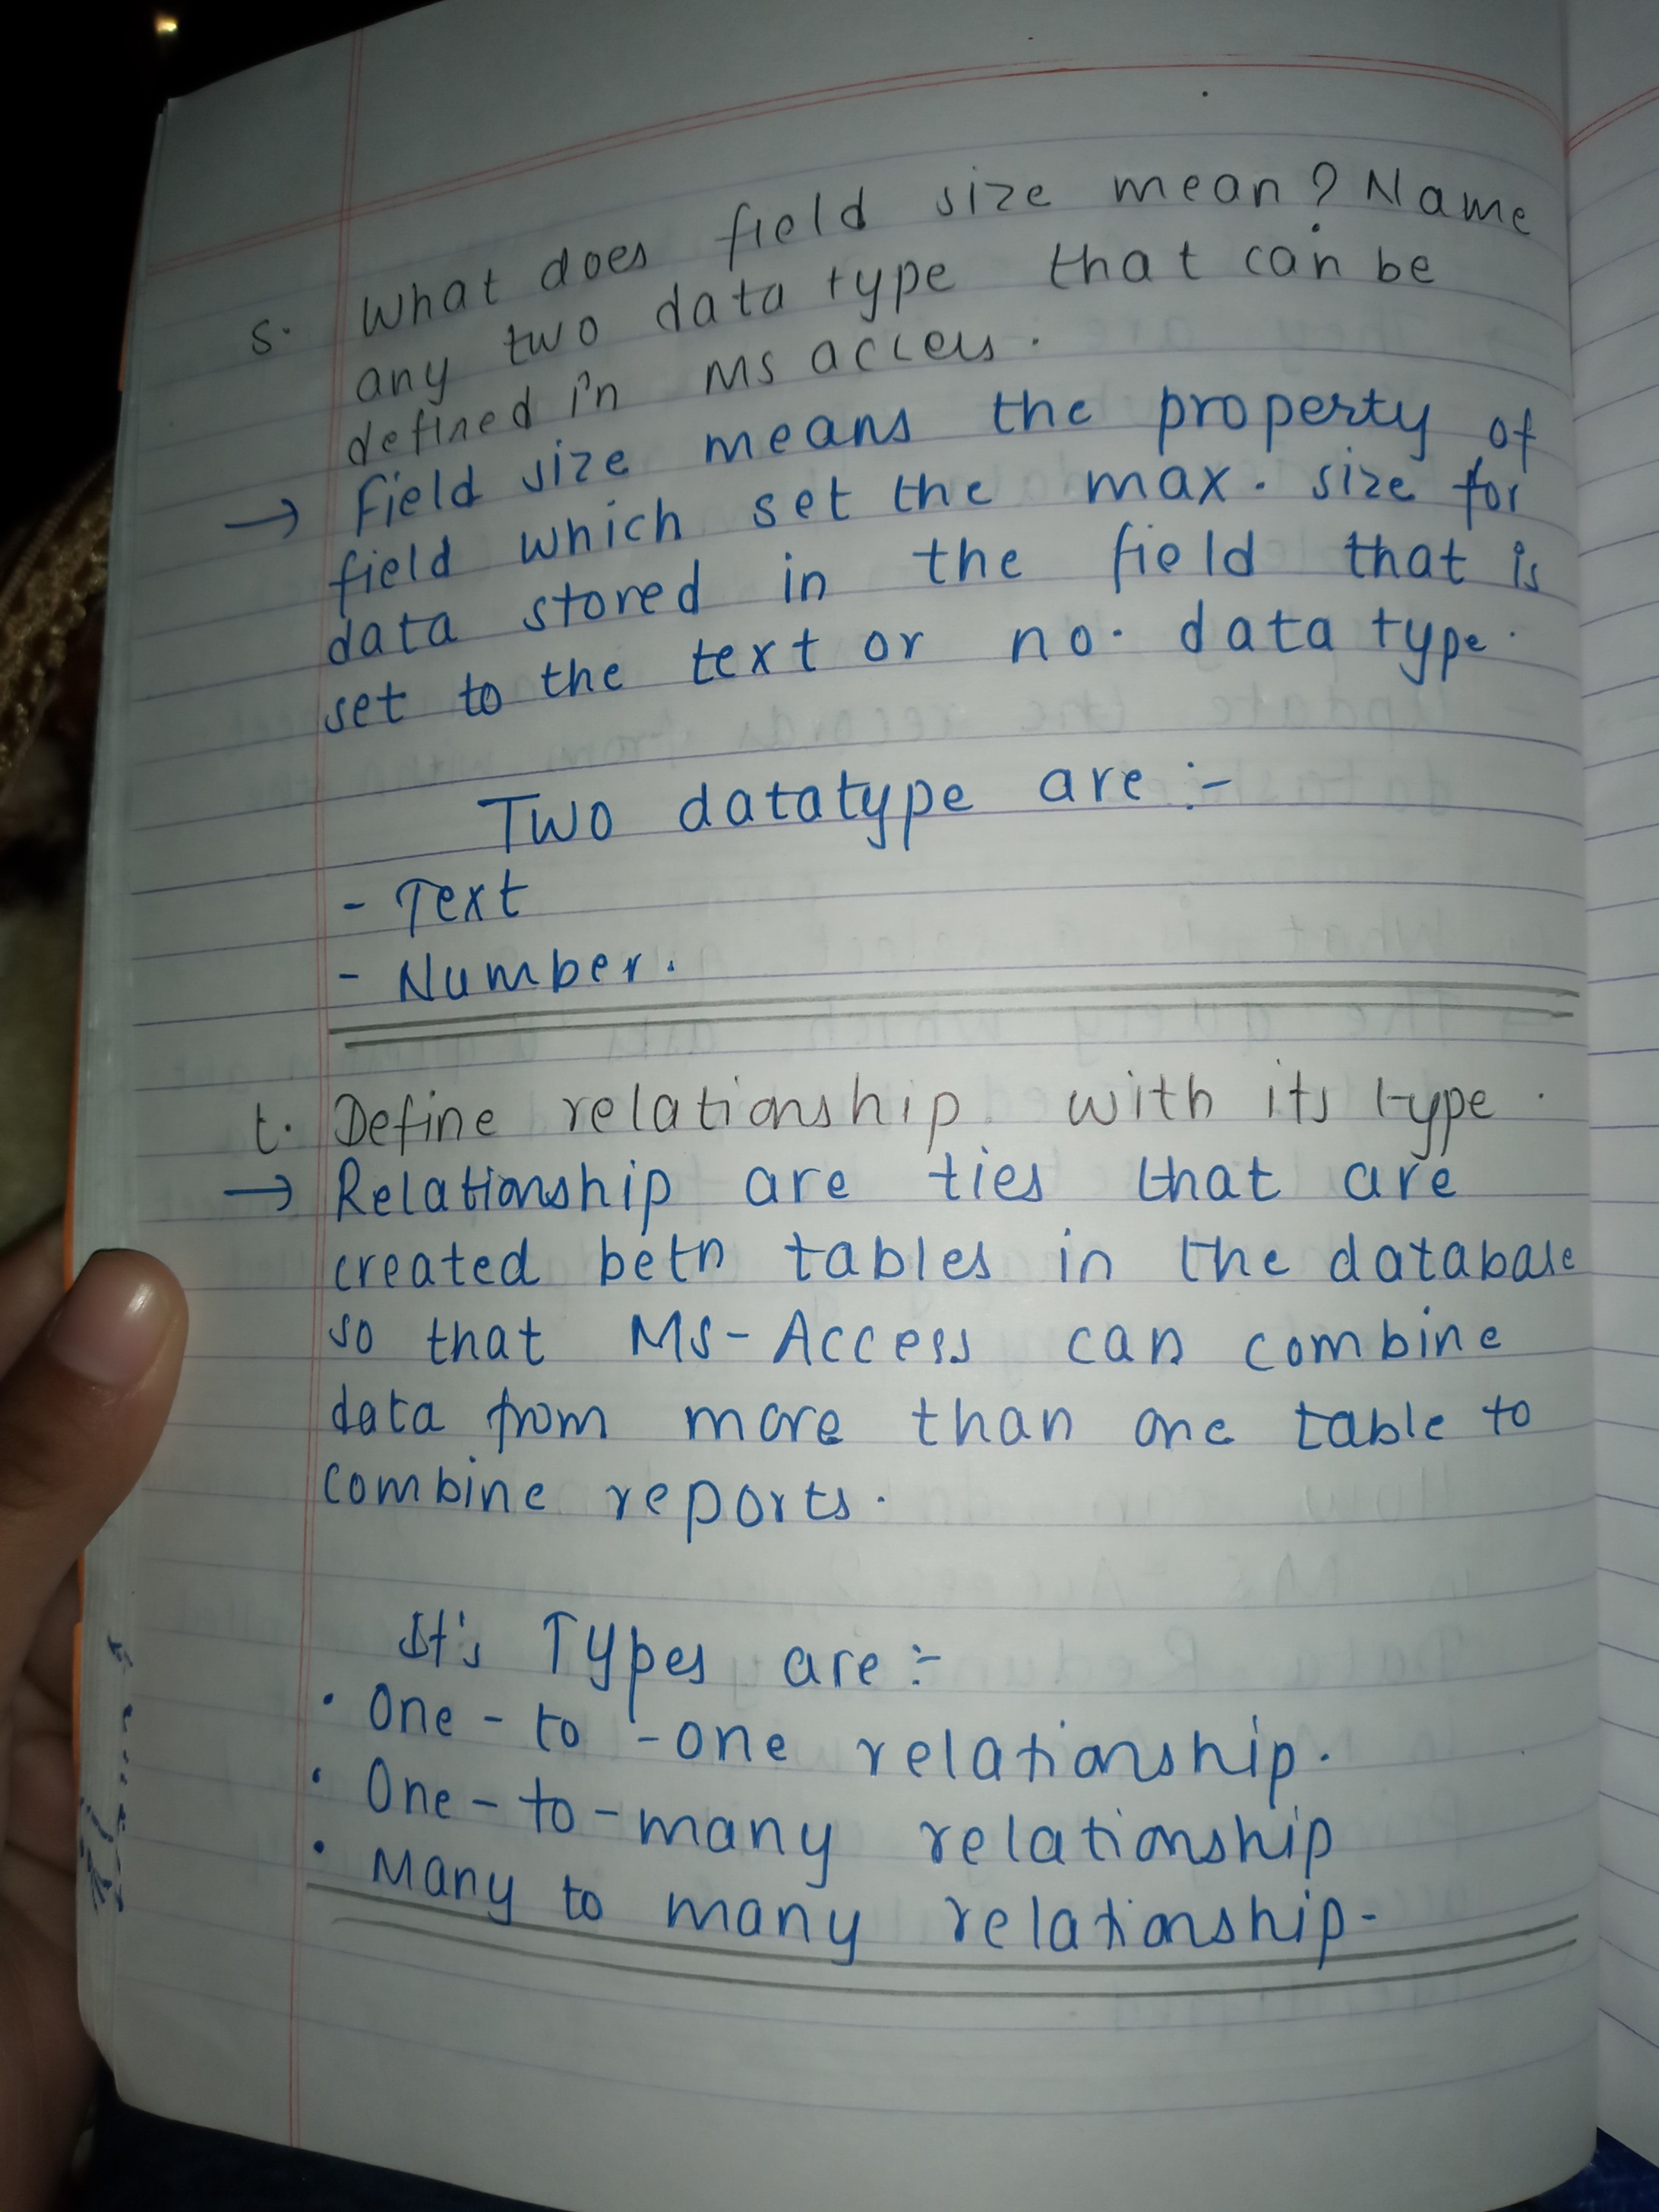 s. What does field size mean? Name
any two data type that can be
defined in MS access.
→ Field size means the property of
field which set the max. size for
data stored in the field that is
set to the text or no. data type.
Two datatype are :-
- Text
- Number.
t. Define relationship with its type.
→ Relationship are ties that are
created betn tables in the database
so that MS-Access can combine
data from more than one table to
combine reports.
It's Types are :-
• One-to-one relationship.
• One-to-many relationship
• Many to many relationship-